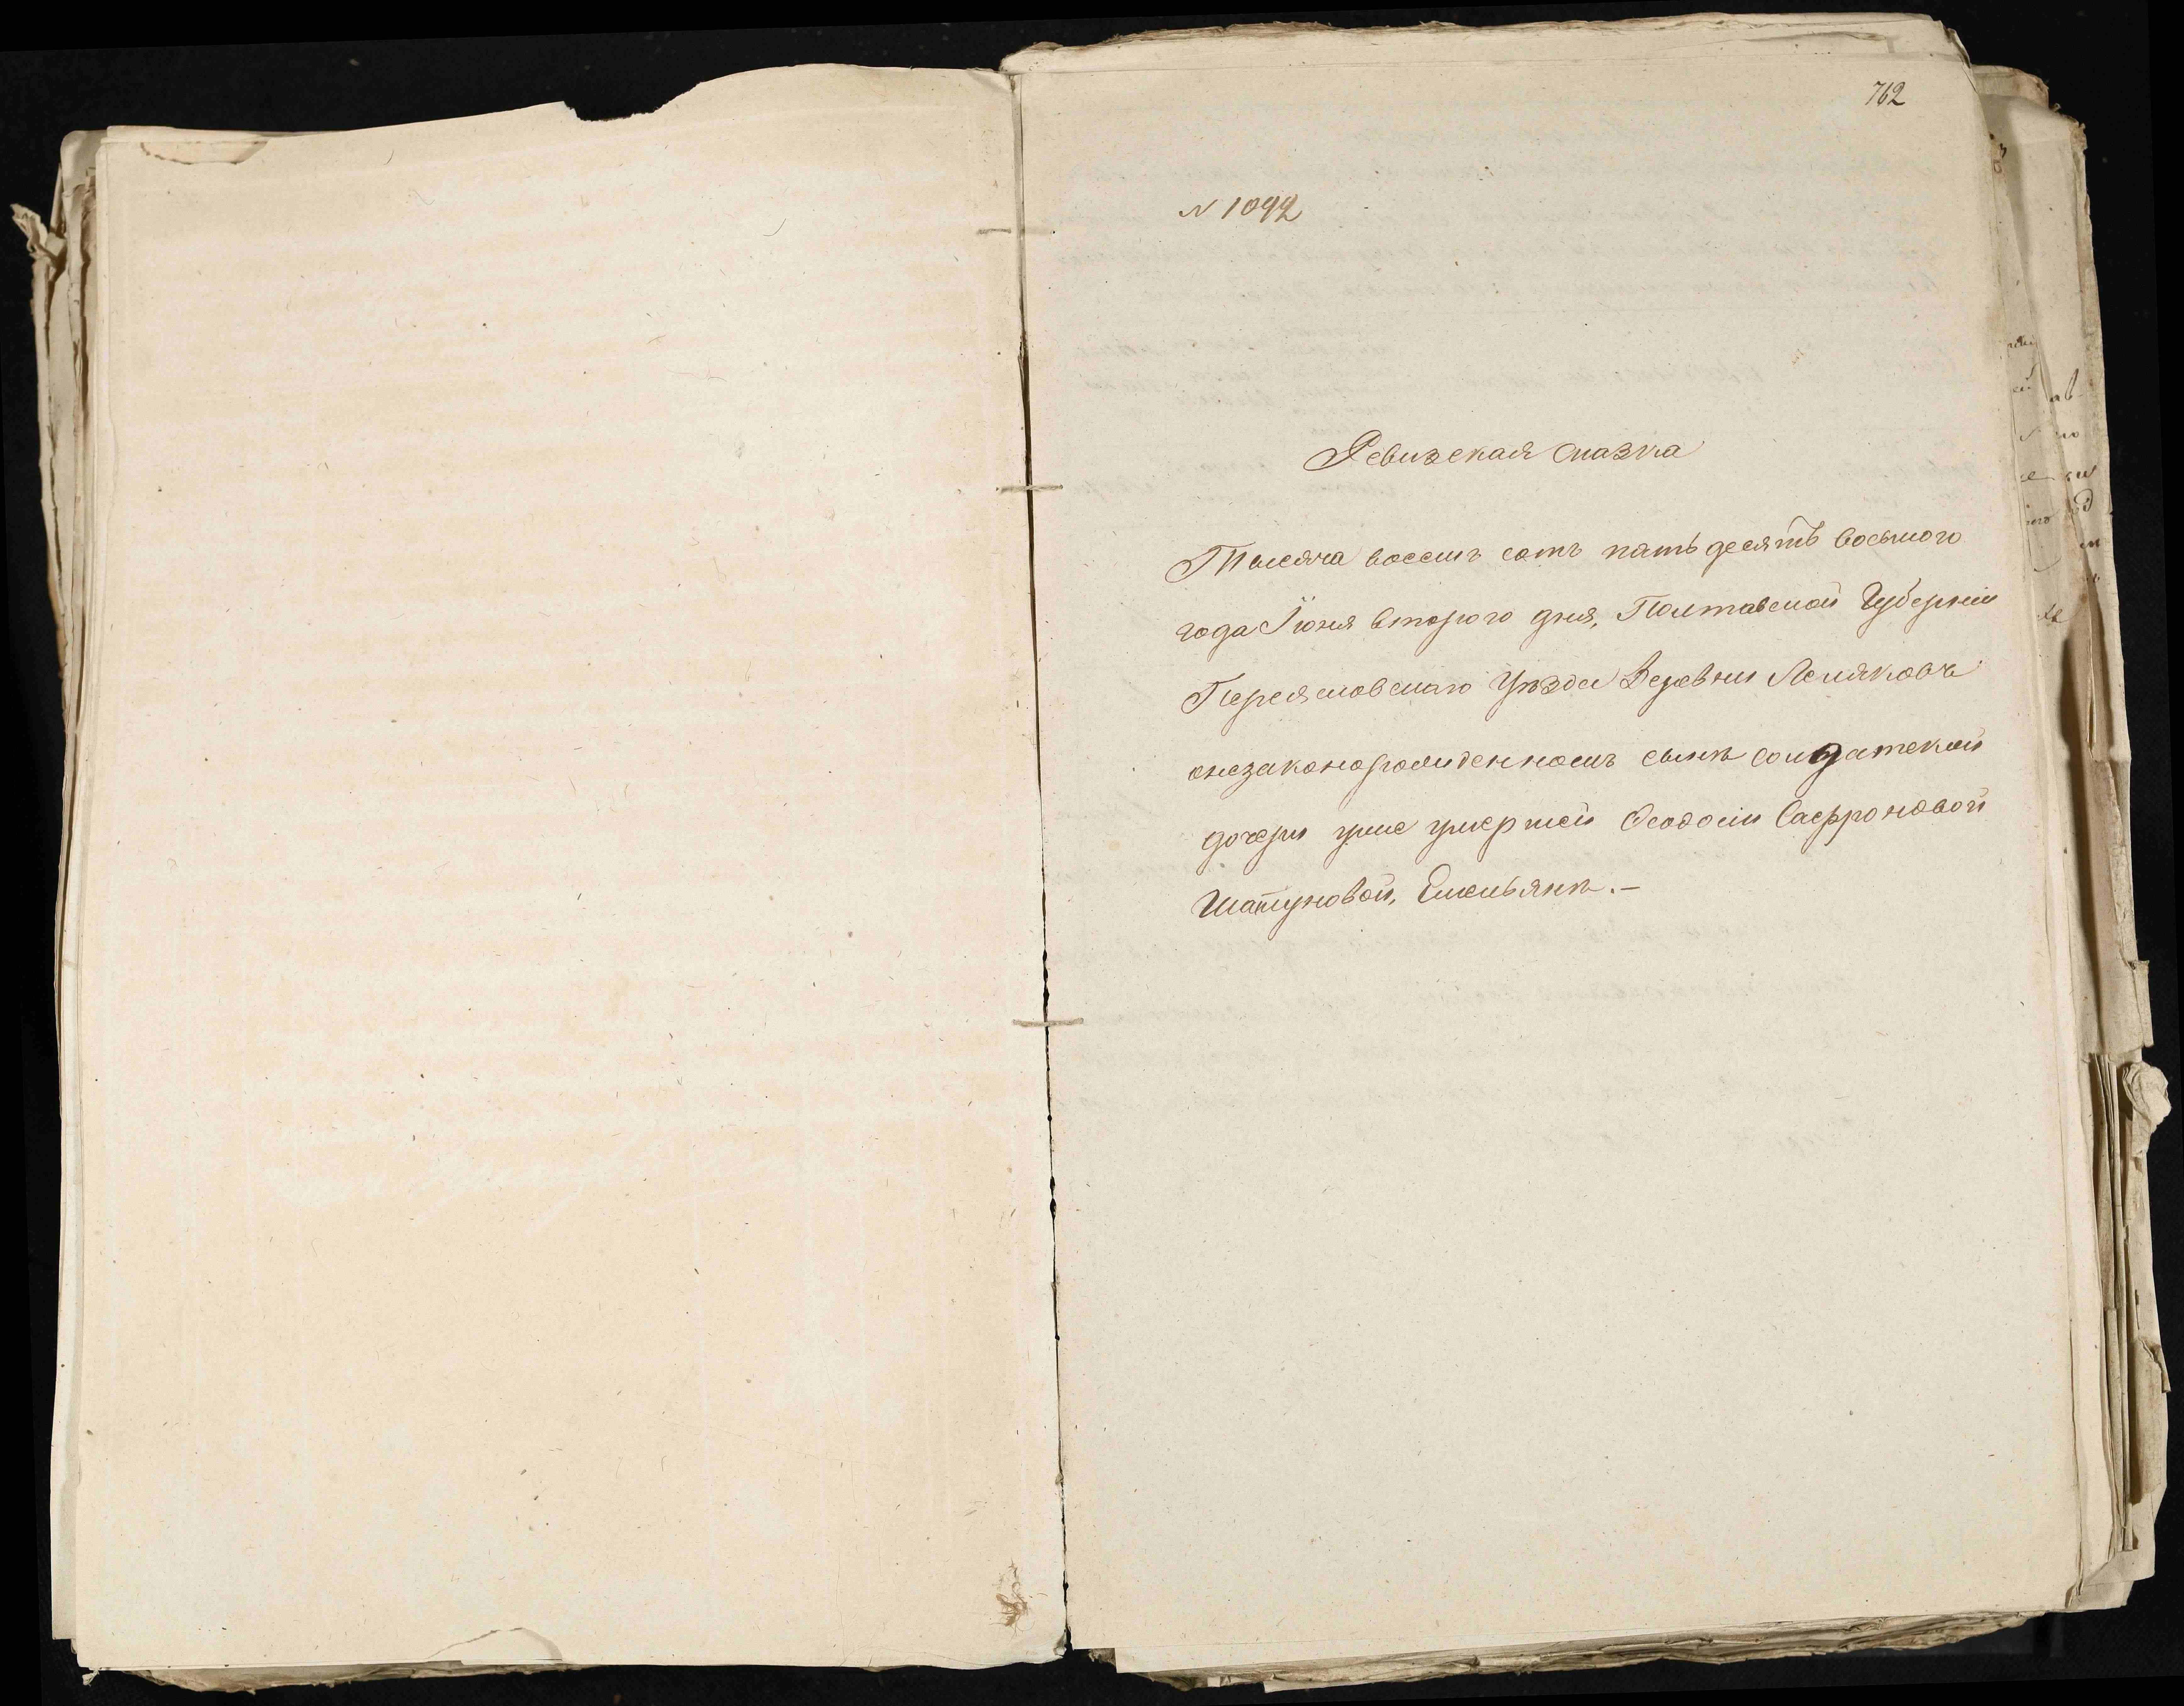 762
N 1092
Ревизская сказка
Тысяча восемь сотъ пять десятъ восьмого
года Іюня второго дня, Полтавской Губерніи
Переяславскаго Уѣзда Деревни Лемяковъ
онезаконорожденномъ сынѣ солдатской
дочери уже умершей Ѳеодосіи Сафроновой
Шатуновой, Емельянѣ.—